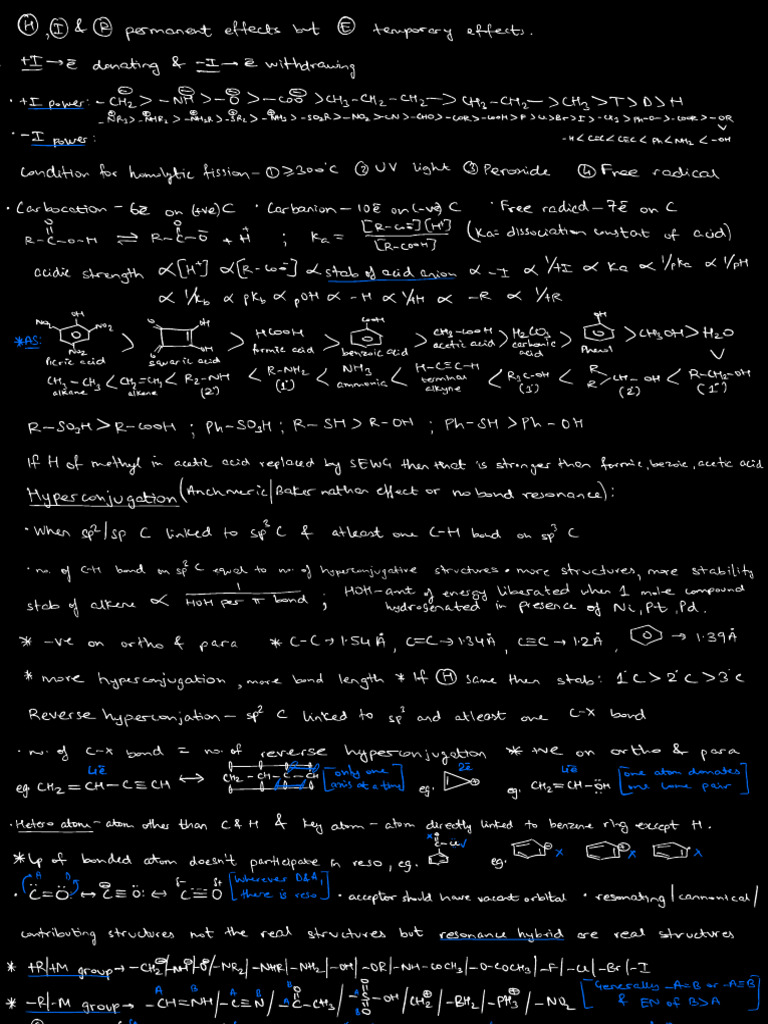 Ⓗ, Ⓘ & Ⓡ permanent effects but Ⓔ temporary effects.
+I → ē donating & -I → ē withdrawing
· +I power: -CH₂⊖ > -NH⊖ > -O⊖ > -COO⊖ > CH₃-CH₂-CH₂- > CH₃-CH₂- > CH₃ > T > D > H
· -I power:
-H < C=C < C≡C < Ph < NH₂ < -OH
Condition for homolytic fission - ① ≥ 300°C ② UV light ③ Peroxide ④ Free radical
· Carbocation - 6ē on (+ve) C · Carbanion - 10ē on (-ve) C · Free radical - 7ē on C
R-C(=O)-O-H ⇌ R-C(=O)-Ō + H⁺ ; Ka = [R-COŌ][H⁺] / [R-COOH] (Ka = dissociation constant of acid)
acidic strength ∝ [H⁺] ∝ [R-COŌ] ∝ stab of acid anion ∝ -I ∝ 1/+I ∝ Ka ∝ 1/pKa ∝ 1/pH
∝ 1/Kb ∝ pKb ∝ pOH ∝ -H ∝ 1/+H ∝ -R ∝ 1/+R
OH NO₂ NO₂ NO₂ > OH OH > HCOOH > COOH > CH₃-COOH > H₂CO₃ > OH > CH₃OH > H₂O
*AS: picric acid squaric acid formic acid benzoic acid acetic acid carbonic acid Phenol
CH₃-CH₃ < CH₂=CH₂ < R₂-NH < R-NH₂ < NH₃ < H-C≡C-H < R₃C-OH < R R CH-OH < R-CH₂-OH
alkane alkene (2°) (1°) ammonia terminal alkyne (2°) (1°)
R-SO₃H > R-COOH ; Ph-SO₃H ; R-SH > R-OH ; Ph-SH > Ph-OH
If H of methyl in acetic acid replaced by SEWG then that is stronger than formic, bezoic, acetic acid
Hyperconjugation (Anchimeric/Baker nathan effect or no bond resonance):
· When sp²/sp C linked to sp³ C & atleast one C-H bond on sp³ C
· no. of C-H bond on sp³ C equal to no. of hyperconjugative structures · more structures, more stability
stab of alkene ∝ 1 / HOH per π bond ; HOH - amt of energy liberated when 1 mole compound
hydrogenated in presence of Ni, Pt, Pd.
* -ve on ortho & para * C-C → 1.54Å, C=C → 1.34Å, C≡C → 1.2Å, → 1.39Å
* more hyperconjugation, more bond length * If Ⓗ same then stab: 1°C > 2°C > 3°C
Reverse hyperconjation - sp² C linked to sp³ and atleast one C-X bond
· no. of C-X bond = no. of reverse hyperconjugation * +ve on ortho & para
4ē only one 2ē 4ē one atom donates
eg. CH₂=CH-C≡CH ↔ CH₂-CH-C-CH axis at a time eg. ⊕ eg. CH₂=CH-ÖH one lone pair
· Hetero atom - atom other than C & H & key atom - atom directly linked to benzene ring except H.
* lp of bonded atom doesn't participate in reso, eg. eg. ⊖ x x x
· C=O ↔ C≡O ↔ C=O [wherever D&A, there is reso] · acceptor should have vacant orbital · resonating/cannonical/
contributing structures not the real structures but resonance hybrid are real structures
* +R/+M group → -CH₂⊖/-NH⊖/-O⊖/-NR₂/-NHR/-NH₂/-OH/-OR/-NH-COCH₃/-O-COCH₃/-F/-Cl/-Br/-I
* -R/-M group → -CH=NH/-C≡N/-C(=O)-CH₃/-S(=O)(=O)-OH/CH₂⊕/-BH₂/-PH₃⊕/-NO₂ [Generally -A=B or -A≡B & EN of B>A]